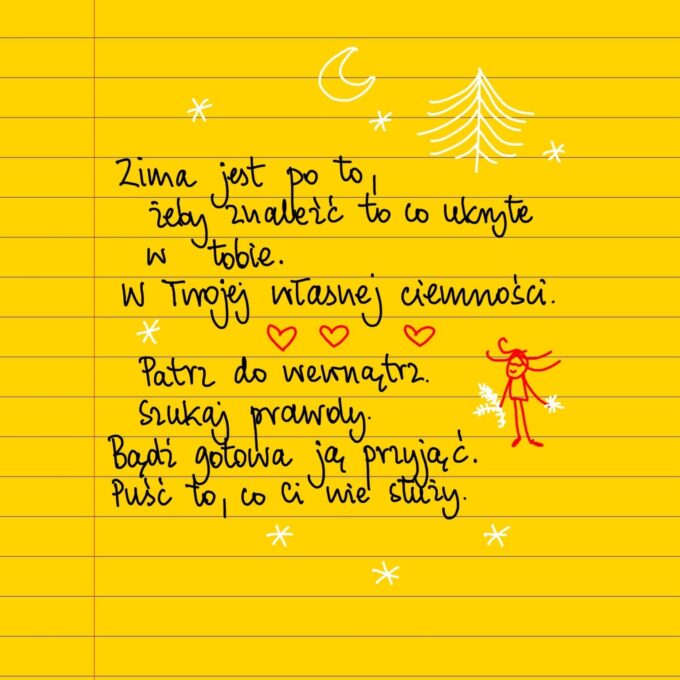 Zima jest po to,
żeby znaleźć to co ukryte
w tobie.
W Twojej własnej ciemności.
Patrz do wewnątrz.
Szukaj prawdy.
Bądź gotowa ją przyjąć.
Puść to, co Ci nie służy.